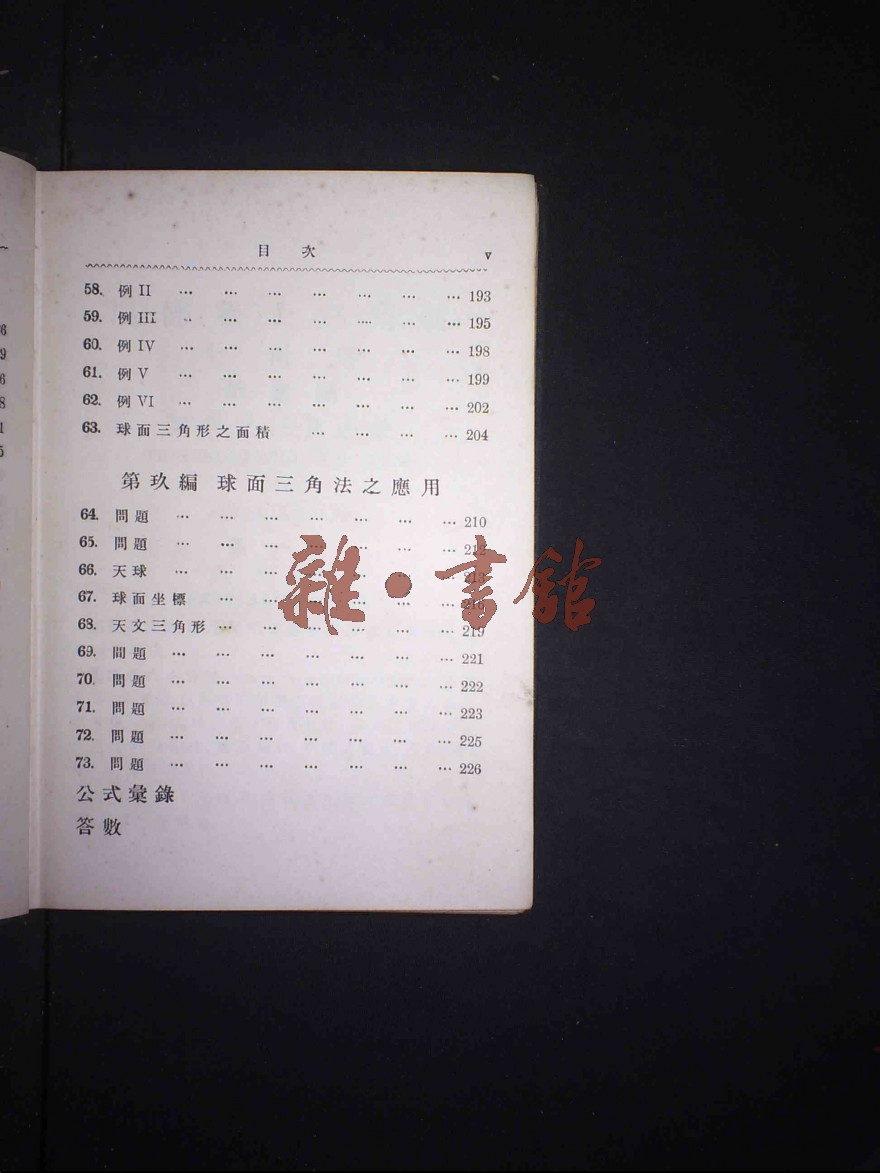 目 次 v
58. 例 II ... ... ... ... ... ... ... 193
59. 例 III .. ... ... ... ... ... ... 195
60. 例 IV ... ... ... ... ... ... ... 198
61. 例 V ... ... ... ... ... ... ... 199
62. 例 VI ... ... ... ... ... ... ... 202
63. 球面三角形之面積 ... ... ... ... 204
第玖編 球面三角法之應用
64. 問題 ... ... ... ... ... ... ... 210
65. 問題 ... ... ... ... ... ... ... 212
66. 天球 ... ... ... ... ... ... ... 213
67. 球面坐標 ... ... ... ... ... ...
68. 天文三角形 ... ... ... ... ... ... 219
69. 問題 ... ... ... ... ... ... ... 221
70. 問題 ... ... ... ... ... ... ... 222
71. 問題 ... ... ... ... ... ... ... 223
72. 問題 ... ... ... ... ... ... ... 225
73. 問題 ... ... ... ... ... ... ... 226
公式彙錄
答數
雜·書館